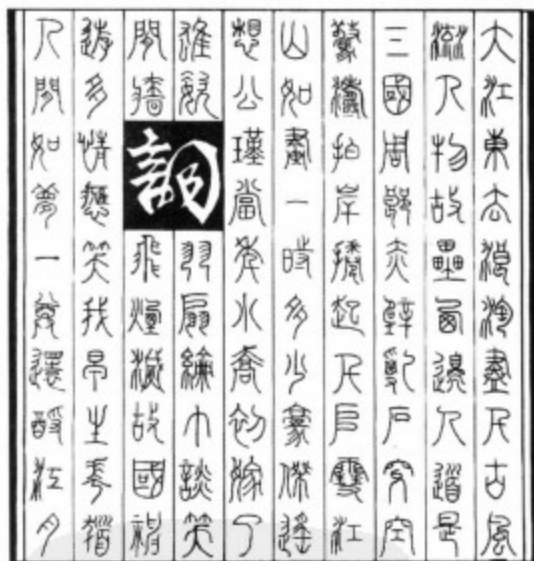 大江東去浪淘盡千古風
流人物故壘西邊人道是
三國周郎赤壁亂石穿空
驚濤拍岸捲起千堆雪江
山如畫一時多少豪傑遙
想公瑾當年小喬初嫁了
雄姿羽扇綸巾談笑
間檣飛煙滅故國神
遊多情應笑我早生華髮
人間如夢一尊還酹江月
詞